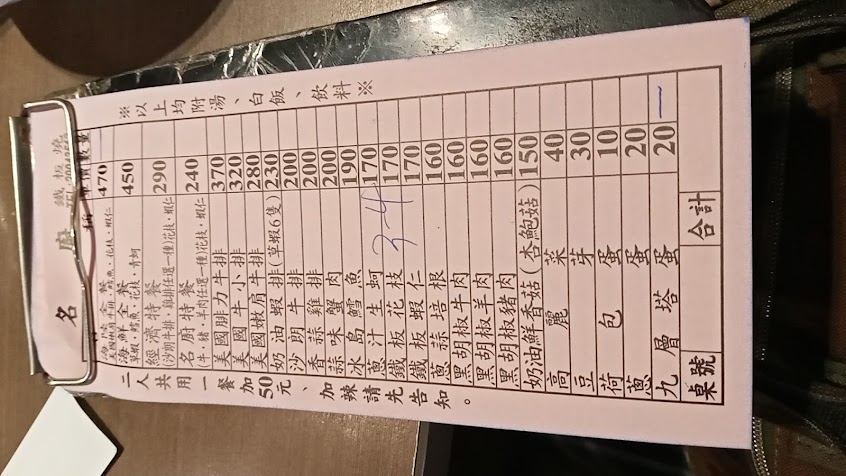 名廚鐵板燒
470
海鮮全餐
草蝦,鱈魚,花枝,青蚵
450
經濟特餐
(沙朗牛排,雞排任選一種)花枝,蝦仁
290
名廚特餐
(牛,豬,羊肉任選一種)花枝,蝦仁
240
美國腓力牛排 370
美國牛小排 320
美國嫩肩牛排 280
奶油蝦排(草蝦6隻) 230
沙朗牛排 200
香蒜雞排 200
蒜味蟹肉 200
冰島鱈魚 190
蔥汁生蚵 170
鐵板花枝 170
鐵板蝦仁 170
蒜培根 160
黑胡椒牛肉 160
黑胡椒羊肉 160
黑胡椒豬肉 160
奶油鮮香菇(杏鮑菇) 150
高麗菜 40
豆芽 30
荷包蛋 10
蔥蛋 20
九層塔蛋 20 一
桌號 合計
34
※以上均附湯、白飯、飲料※
二人共用一餐加50元、加辣請先告知。